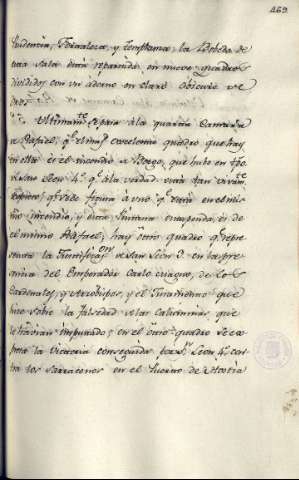 269.
Prudencia, Fortaleza, y Templanza; la Bobeda de
esta sala está repartida en nueve quadros
divididos con un adorno en claro obscuro
Ultimam.te se pasa á la quarta Camara
de Rafael; q.e el mas excelente quadro que hay
en ella es el incendio de Borgo, que hubo en tpo.
de San Leon 4.º q.e á la verdad está tan vivam.te
q.e se le figura á uno q.e está en el mis
mo incendio, y esta Pintura estupenda, es de
el mismo Rafael; hay otro quadro q.e repre
senta la Justificaz.on de San Leon 3.º en la pre
sencia del Emperador Carlo Magno, de los
Cardenales, y Arzobispos, y el Juramento que
hizo sobre la falsedad de las calumnias que
le havian imputado; en el otro quadro se ex
presa la Victoria conseguida por S.n Leon 4.º con
tra los Sarracenos en el Puerto de Hostia